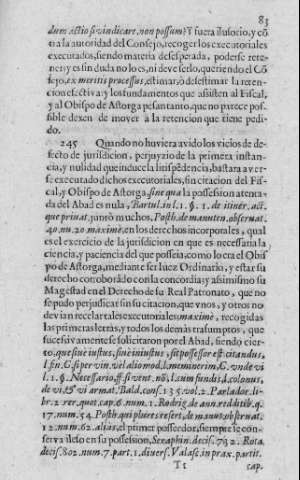 83
dum actio si vindicare, non possum? Y fuera ilusorio, y cō
tra la autoridad del Consejo, recoger los executoriales
executados, siendo materia desesperada, poderse rete-
ner: y es sin duda no lo es, ni deve serlo, queriendo el Cō
sejo, ex meritis processus, estimar, ò desestimar la reten-
cion efectiva: y los fundamentos que assisten al Fiscal,
y al Obispo de Astorga pesan tanto, que no parece pos-
sible dexen de mover a la retencion que tiene pedi-
do.
245 Quando no huviera avido los vicios de de-
fecto de jurisdicion, perjuyzio de la primera instan-
cia, y nulidad que induce la litispēdencia, bastara aver-
se executado dichos executoriales, sin citacion del Fis-
cal, y Obispo de Astorga, sine qua la possession atenta-
da del Abad es nula, Bartul. in l. 1. §. 1. de itiner. act.
que privat. juntò muchos, Posth. de manuten. observat.
40. nu. 20. maximè, en los derechos incorporales, qual
es el exercicio de la jurisdicion en que es necessaria la
ciencia, y paciencia del que posseìa, como lo era el Obis-
po de Astorga, mediante ser Iuez Ordinario, y estar su
derecho corroborado con la concordia: y assimismo su
Magestad en el Derecho de su Real Patronato, que no
se pudo perjudicar sin su citacion, que vnos, y otros no
devian recelar tales executoriales maximè, recogidas
las primeras letras, y todos los demàs trasumptos, que
sucessivamente se solicitaron por el Abad, siendo cier-
to, que sive iustus, sive iniustus, sit possessor est citandus,
l. fin. C. si per vim. vel alio mod. l. meminerim, C. vnde vi
l. 1. §. Necessario, ff. si vent. nō. l. cum fundū, l. colonus,
de vi, & vi armat. Bald. conf. 135. vol. 2. Parlador. lib.
br. 2. rer. quot. cap. 6. num. 1. Rodrig. de ann. reddit. lib. q.
17. num. 54. Posth. qui plures refert, de manut. observat.
12. num. 62. alias, el primer possedor, siempre le con-
serva ileso en su possession, Seraphin. decis. 792. Rota.
decis. 802. num. 7. part. 1. divers. Valasc. in prax. partit.
T1 cap.